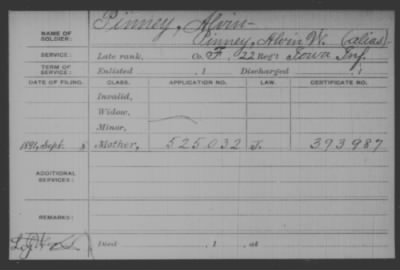 Pinney, Alvin
NAME OF SOLDIER: Pinney, Alvin W. (alias)
SERVICE: Late rank, Co. F, 22 Reg't Iowa Inf.
TERM OF SERVICE: Enlisted , 1 Discharged , 1
DATE OF FILING. CLASS. APPLICATION NO. LAW. CERTIFICATE NO.
Invalid,
Widow,
Minor,
Sept. Mother, 525,032 J. 393,987
ADDITIONAL SERVICES:
REMARKS:
Died , 1 , at